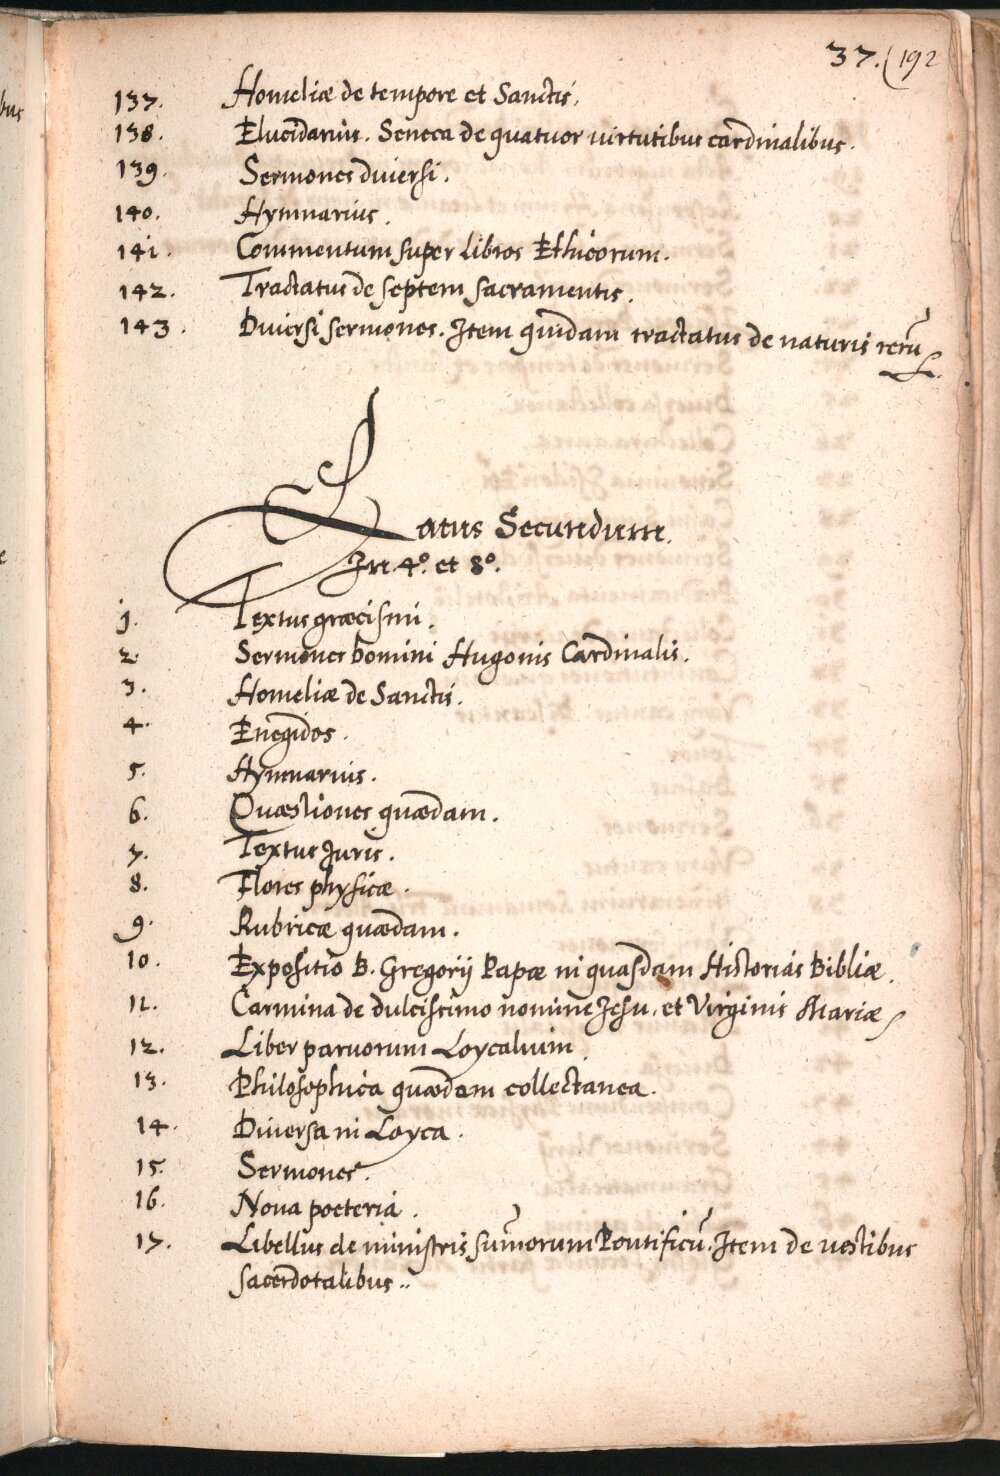 37. (192
137. Homeliæ de tempore et Sanctis.
138. Elucidarius. Seneca de quatuor virtutibus cardinalibus.
139. Sermones diuersi.
140. Hymnarius.
141. Commentum super Libros Ethicorum.
142. Tractatus de septem sacramentis.
143. Diuersi sermones. Item quidam tractatus de naturis rerū
Latus Secundum.
In 4º. et 8º.
1. Textus græcismi.
2. Sermones Domini Hugonis Cardinalis.
3. Homeliæ de Sanctis.
4.
5. Hymnarius.
6. Quæstiones quædam.
7. Textus Juris.
8. Flores physicæ.
9. Rubricæ quædam.
10. Expositio B. Gregorij Papæ in quasdam Historias Bibliæ.
11. Carmina de dulcissimo nomine Jesu, et Virginis Mariæ
12. Liber paruorum Loycalium.
13. Philosophica quædam collectanea.
14. Diuersa in Loyca.
15. Sermones.
16. Noua poeteria.
17. Libellus de ministris sum̄orum Pontificū. Item de vestibus
sacerdotalibus..